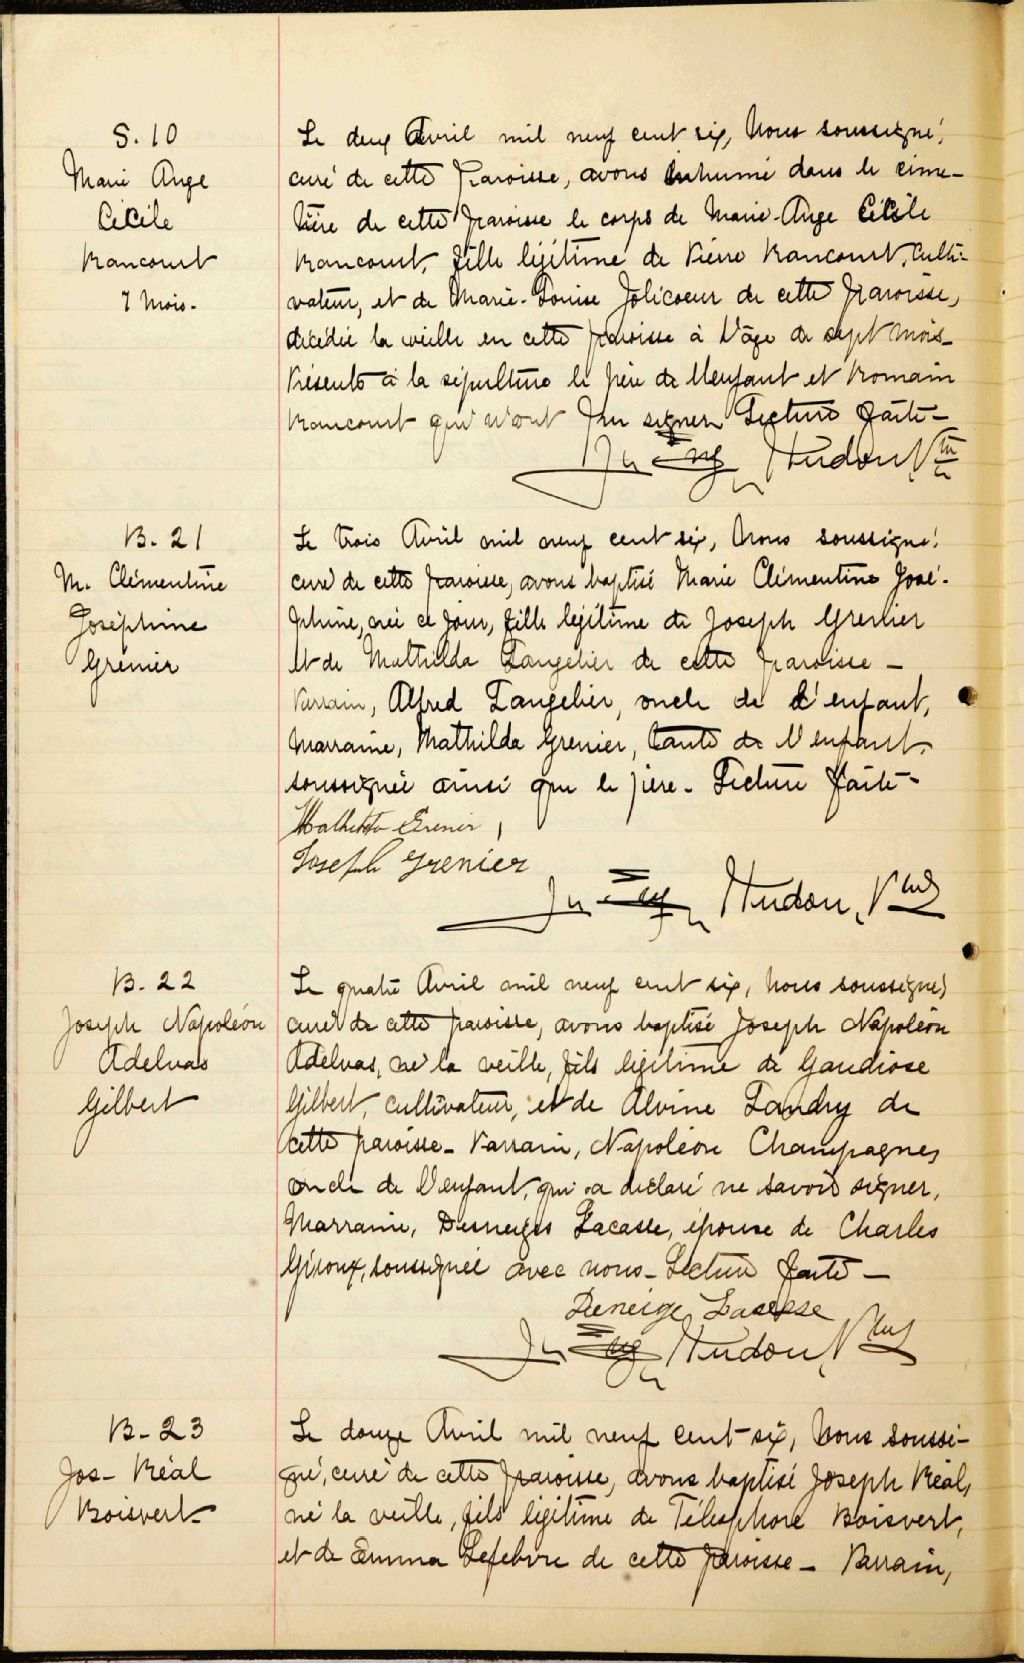 S. 10
Marie Ange
Cécile
Rancourt
7 Mois.
Le deux Avril mil neuf cent six, Nous soussigné,
curé de cette Paroisse, avons inhumé dans le cime-
tière de cette paroisse le corps de Marie-Ange Cécile
Rancourt, fille légitime de Pierre Rancourt, Culti-
vateur, et de Marie-Louise Jolicoeur de cette paroisse,
décédée la veille en cette paroisse à l'âge de sept mois-
Présents à la sépulture le père de l'enfant et Romain
Rancourt qui n'ont pu signer Lecture faite-
Jn Eug Hudon, Ptre
B. 21
M. Clémentine
Joséphine
Grenier
Le trois Avril mil neuf cent six, Nous soussigné,
curé de cette paroisse, avons baptisé Marie Clémentine José-
phine, née ce jour, fille légitime de Joseph Grenier
et de Mathilda Langelier de cette paroisse -
Parrain, Alfred Langelier, oncle de l'enfant,
Marraine, Mathilda Grenier, tante de l'enfant,
soussignée ainsi que le père. Lecture faite-
Grenier,
Joseph Grenier
Jn Eug Hudon, Ptre
B. 22
Joseph Napoléon
Adelvas
Gilbert
Le quatre Avril mil neuf cent six, Nous soussigné,
curé de cette paroisse, avons baptisé Joseph Napoléon
Adelvas, né la veille, fils légitime de Gaudiose
Gilbert, cultivateur, et de Alvine Landry de
cette paroisse- Parrain, Napoléon Champagne,
oncle de l'enfant, qui a déclaré ne savoir signer,
Marraine, Desneiges Lacasse, épouse de Charles
Giroux, soussignée avec nous- Lecture faite -
Deneige Lacasse
Jn Eug Hudon, Ptre
B- 23
Jos- Réal
Boisvert-
Le douze Avril mil neuf cent six, Nous soussi-
gné, curé de cette paroisse, avons baptisé Joseph Réal,
né la veille, fils légitime de Télesphore Boisvert,
et de Emma Lefebvre de cette paroisse - Parrain,